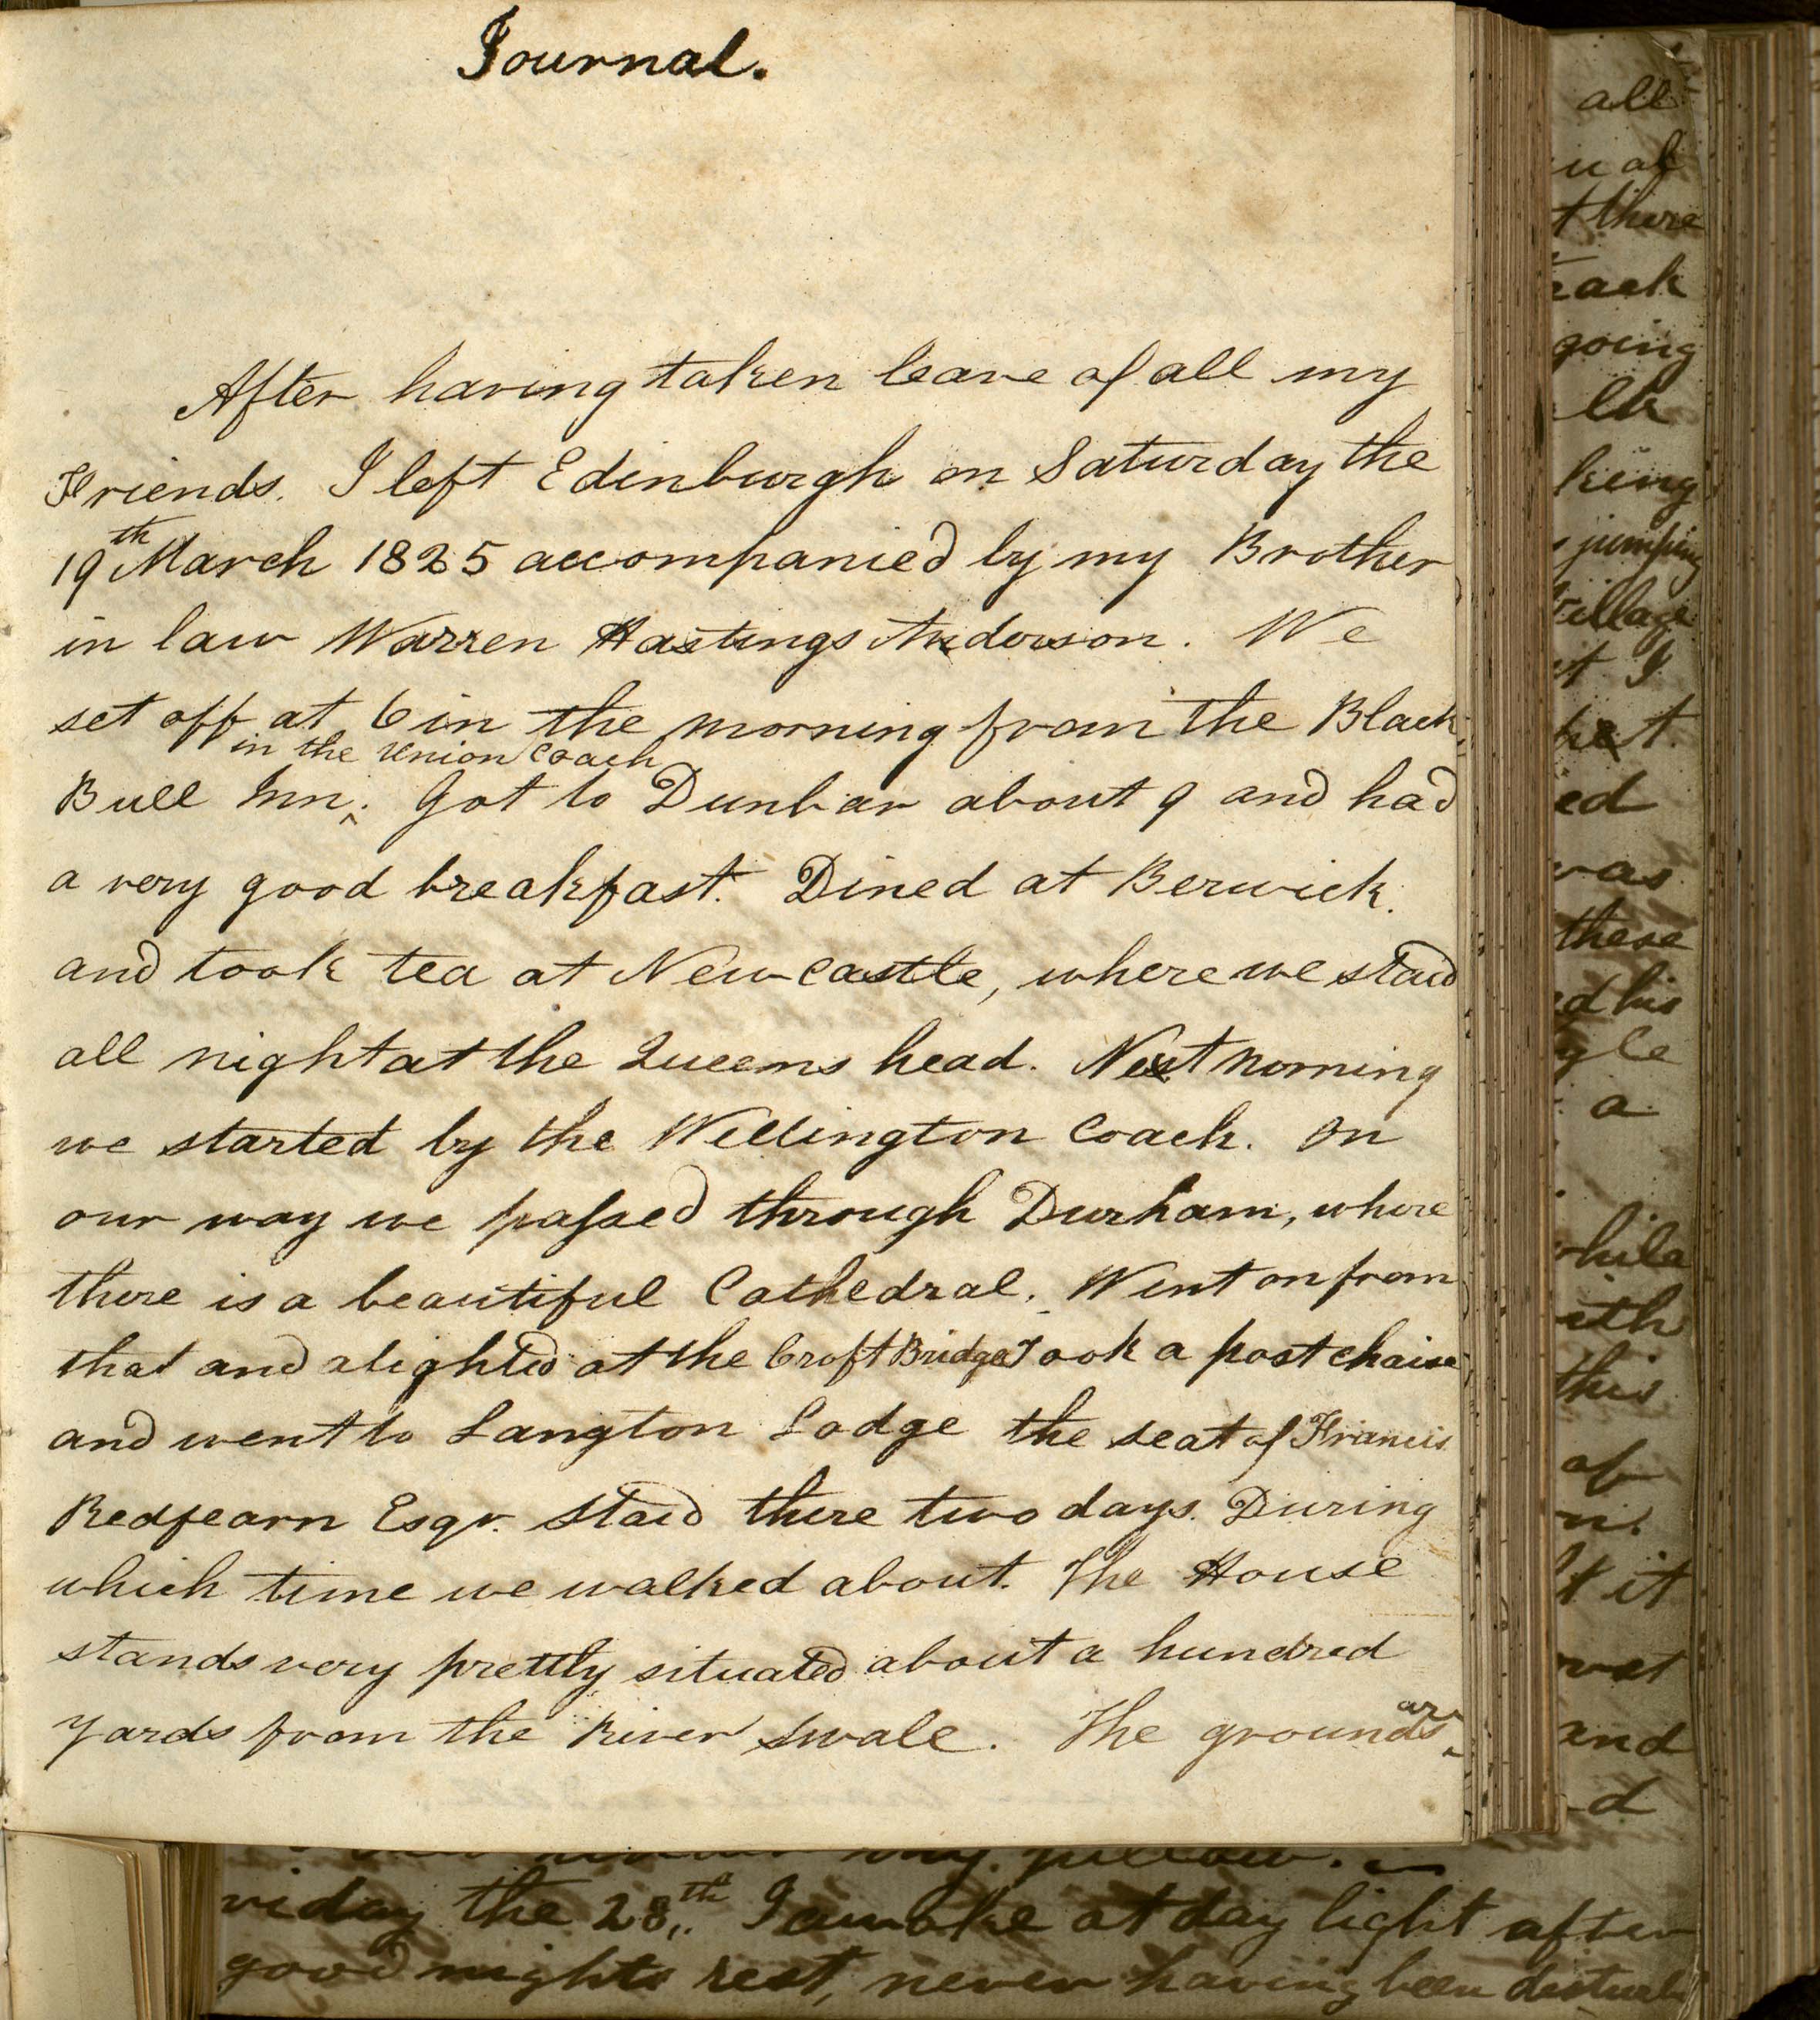 Journal.
After having taken leave of all my
Friends. I left Edinburgh on Saturday the
19th March 1825 accompanied by my Brother
in law Warren Hastings Anderson. We
set off at 6 in the morning from the Black
in the Union Coach
Bull Inn. Got to Dunbar about 9 and had
a very good breakfast. Dined at Berwick.
and took tea at Newcastle, where we staid
all night at the Queens head. Next morning
we started by the Wellington Coach. On
our way we passed through Durham, where
there is a beautiful Cathedral. Went on from
that and alighted at the Croft Bridge Took a post chaise
and went to Langton Lodge the seat of Francis
Redfearn Esqr. Staid there two days. During
which time we walked about. The House
stands very prettily situated about a hundred
yards from the River Swale. The grounds
are
my pillow.
riday the 28th. I awoke at day light after
good nights rest, never having been disturb
all
t there
going
king
jumping
village
t I
ed
was
these
d his
a
while
ith
this
of
it
and
d